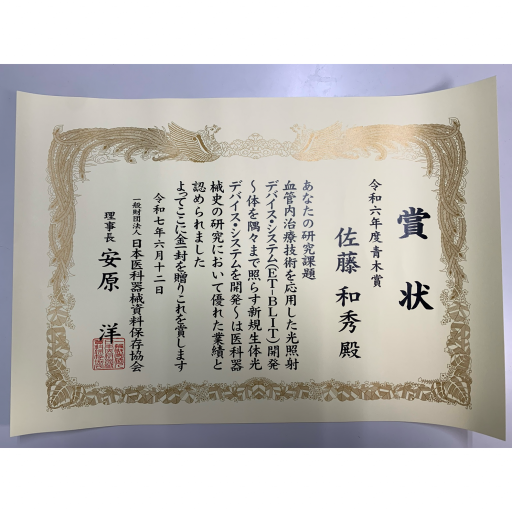 賞状
令和六年度青木賞
佐藤和秀殿
あなたの研究課題
血管内治療技術を応用した光照射
デバイス・システム(ET-BLIT)開発
～体を隅々まで照らす新規生体光
デバイス・システムを開発～は医科器
械史の研究において優れた業績と
認められました
よってここに金一封を贈りこれを賞します
令和七年六月十二日
一般財団法人日本医科器械資料保存協会
理事長 安原 洋